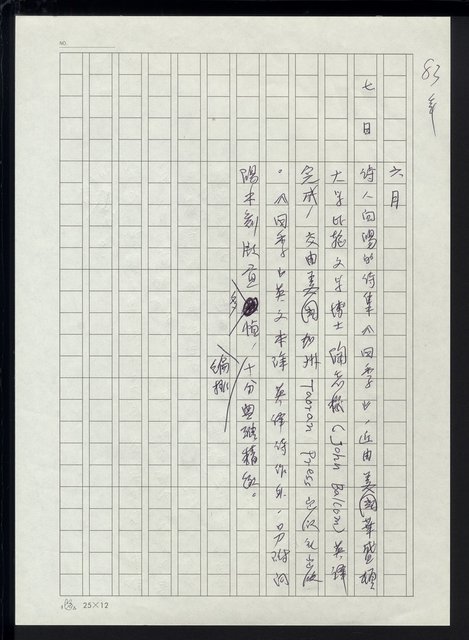 83年
六月
七日 詩人向陽的詩集《四季》,近由美國華盛頓
大學比較文學博士陶忘機(John Balcom)英譯
完成,交由美國加州 Taoran Press 出版
。《四季》英文本除英譯詩作外,另附向
陽木刻版畫多幀,十分典雅精緻。
編排
NO.
25×12